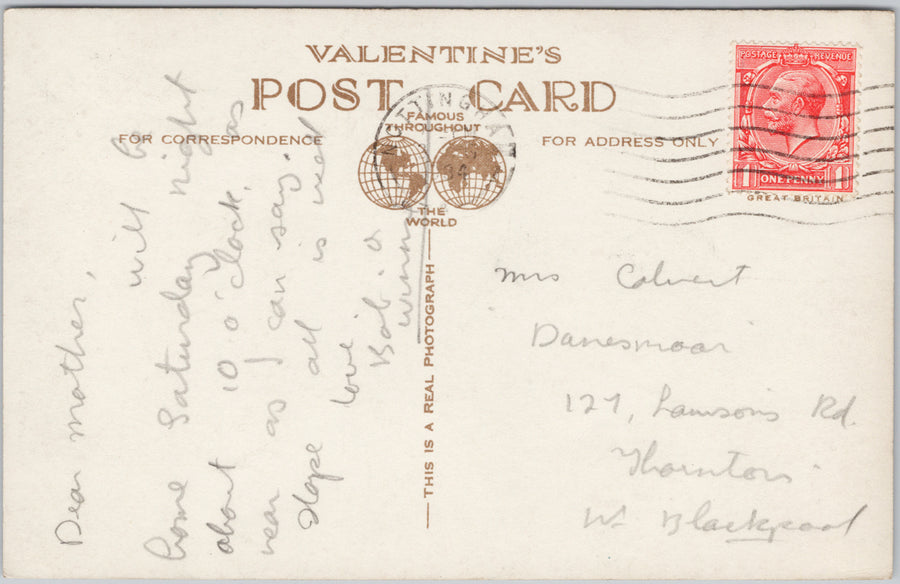 VALENTINE'S
POST CARD
FAMOUS
THROUGHOUT
THE
WORLD
FOR CORRESPONDENCE
FOR ADDRESS ONLY
THIS IS A REAL PHOTOGRAPH
POSTAGE REVENUE
1 ONE PENNY 1
GREAT BRITAIN
Dear Mother,
will be
home Saturday night
about 10 o'clock, as
near as I can say.
Hope all is well
love
Bob &
Winny
Mrs Calvert
Danesmoor
127, Lawsons Rd.
Thornton
Nr Blackpool